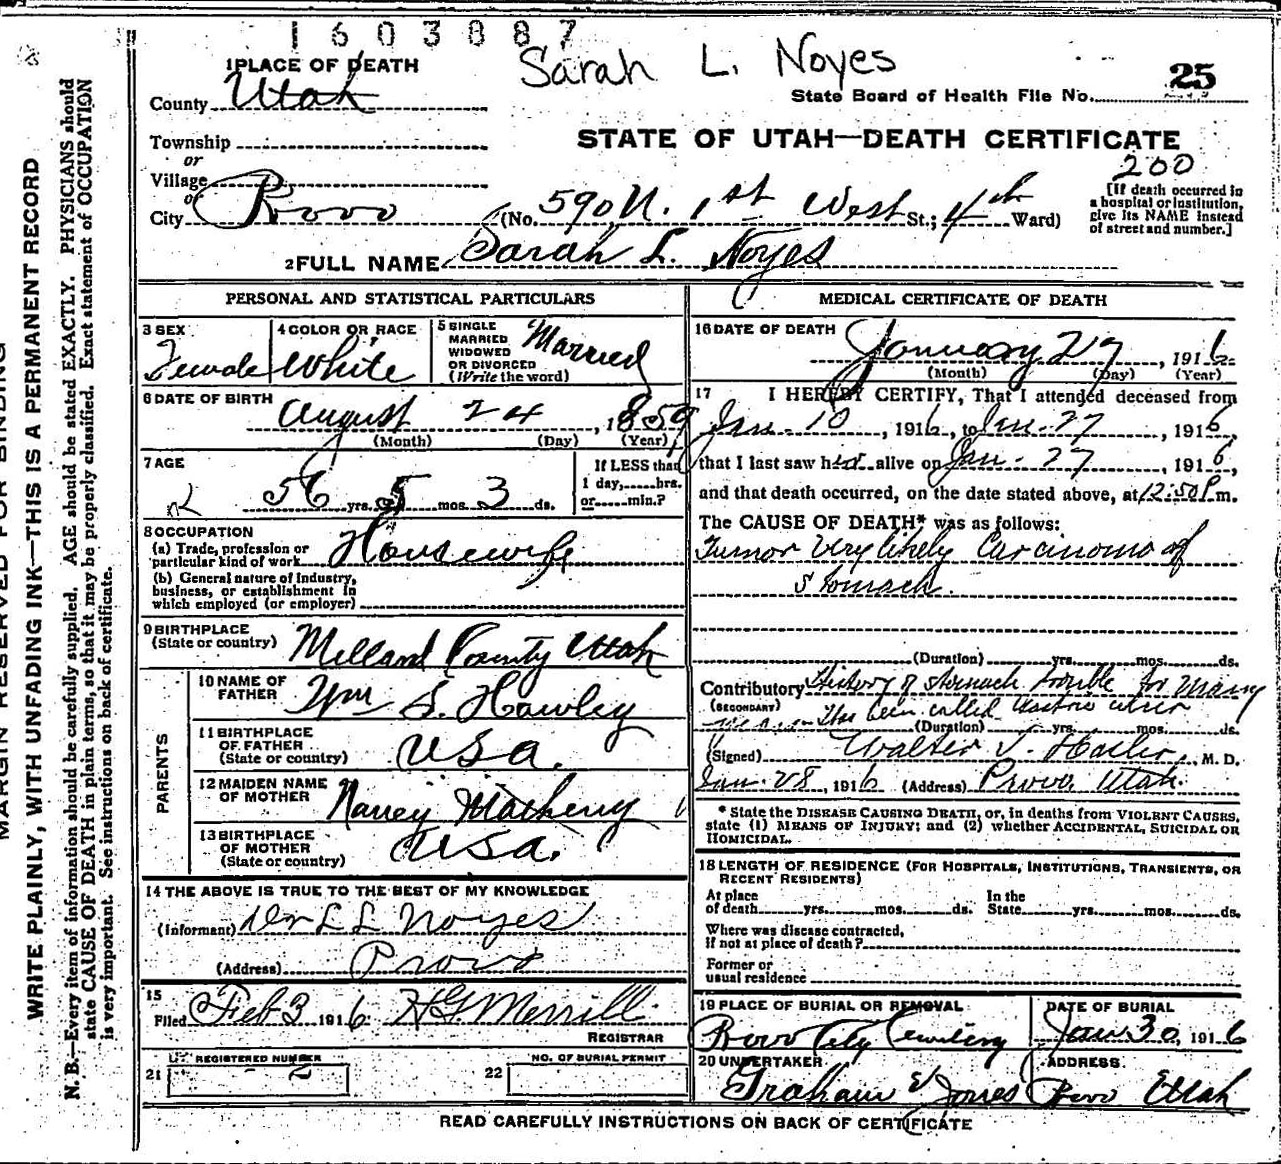 1603887
Sarah L. Noyes
25
1 PLACE OF DEATH
County Utah
State Board of Health File No.
Township
or
Village
or
City Provo
STATE OF UTAH—DEATH CERTIFICATE
200
(No. 590 N. 1st West St.; 4th Ward)
[If death occurred in
a hospital or institution,
give its NAME instead
of street and number.]
2 FULL NAME Sarah L. Noyes
PERSONAL AND STATISTICAL PARTICULARS
3 SEX
Female
4 COLOR OR RACE
White
5 SINGLE
MARRIED
WIDOWED
OR DIVORCED
(Write the word)
Married
6 DATE OF BIRTH
August 24, 1859
(Month) (Day) (Year)
7 AGE
56 yrs. 5 mos. 3 ds.
If LESS than
1 day,......hrs.
or......min.?
8 OCCUPATION
(a) Trade, profession or
particular kind of work Housewife
(b) General nature of Industry,
business, or establishment in
which employed (or employer)
9 BIRTHPLACE
(State or country) Millard County Utah
PARENTS
10 NAME OF
FATHER Wm S. Hawley
11 BIRTHPLACE
OF FATHER
(State or country) USA.
12 MAIDEN NAME
OF MOTHER Nancy Matheny
13 BIRTHPLACE
OF MOTHER
(State or country) USA.
14 THE ABOVE IS TRUE TO THE BEST OF MY KNOWLEDGE
(Informant) L L Noyes
(Address) Provo
15
Filed Feb 3 1916 H G Merrill
REGISTRAR
REGISTERED NUMBER
21 2
NO. OF BURIAL PERMIT
22
MEDICAL CERTIFICATE OF DEATH
16 DATE OF DEATH
January 27, 1916
(Month) (Day) (Year)
17 I HEREBY CERTIFY, That I attended deceased from
Jan. 10, 1916, to Jan. 27, 1916,
that I last saw her alive on Jan. 27, 1916,
and that death occurred, on the date stated above, at 12:50 P.m.
The CAUSE OF DEATH* was as follows:
Tumor Very likely Carcinoma of
Stomach.
(Duration) yrs. mos. ds.
Contributory History of stomach trouble for many
(SECONDARY) Has been called Gastric ulcer
(Duration) yrs. mos. ds.
(Signed) Walter T. Hasler, M. D.
Jan. 28, 1916 (Address) Provo, Utah.
* State the DISEASE CAUSING DEATH, or, in deaths from VIOLENT CAUSES,
state (1) MEANS OF INJURY; and (2) whether ACCIDENTAL, SUICIDAL OR
HOMICIDAL.
18 LENGTH OF RESIDENCE (FOR HOSPITALS, INSTITUTIONS, TRANSIENTS, OR
RECENT RESIDENTS)
At place
of death......yrs......mos......ds.
In the
State......yrs......mos......ds.
Where was disease contracted,
if not at place of death?
Former or
usual residence
19 PLACE OF BURIAL OR REMOVAL
Provo City Cemetery
DATE OF BURIAL
Jan. 30, 1916
20 UNDERTAKER
Graham & Jones
ADDRESS
Provo Utah
READ CAREFULLY INSTRUCTIONS ON BACK OF CERTIFICATE
MARGIN RESERVED FOR BINDING
WRITE PLAINLY, WITH UNFADING INK—THIS IS A PERMANENT RECORD
N. B.—Every item of information should be carefully supplied. AGE should be stated EXACTLY. PHYSICIANS should
state CAUSE OF DEATH in plain terms, so that it may be properly classified. Exact statement of OCCUPATION
is very important. See instructions on back of certificate.